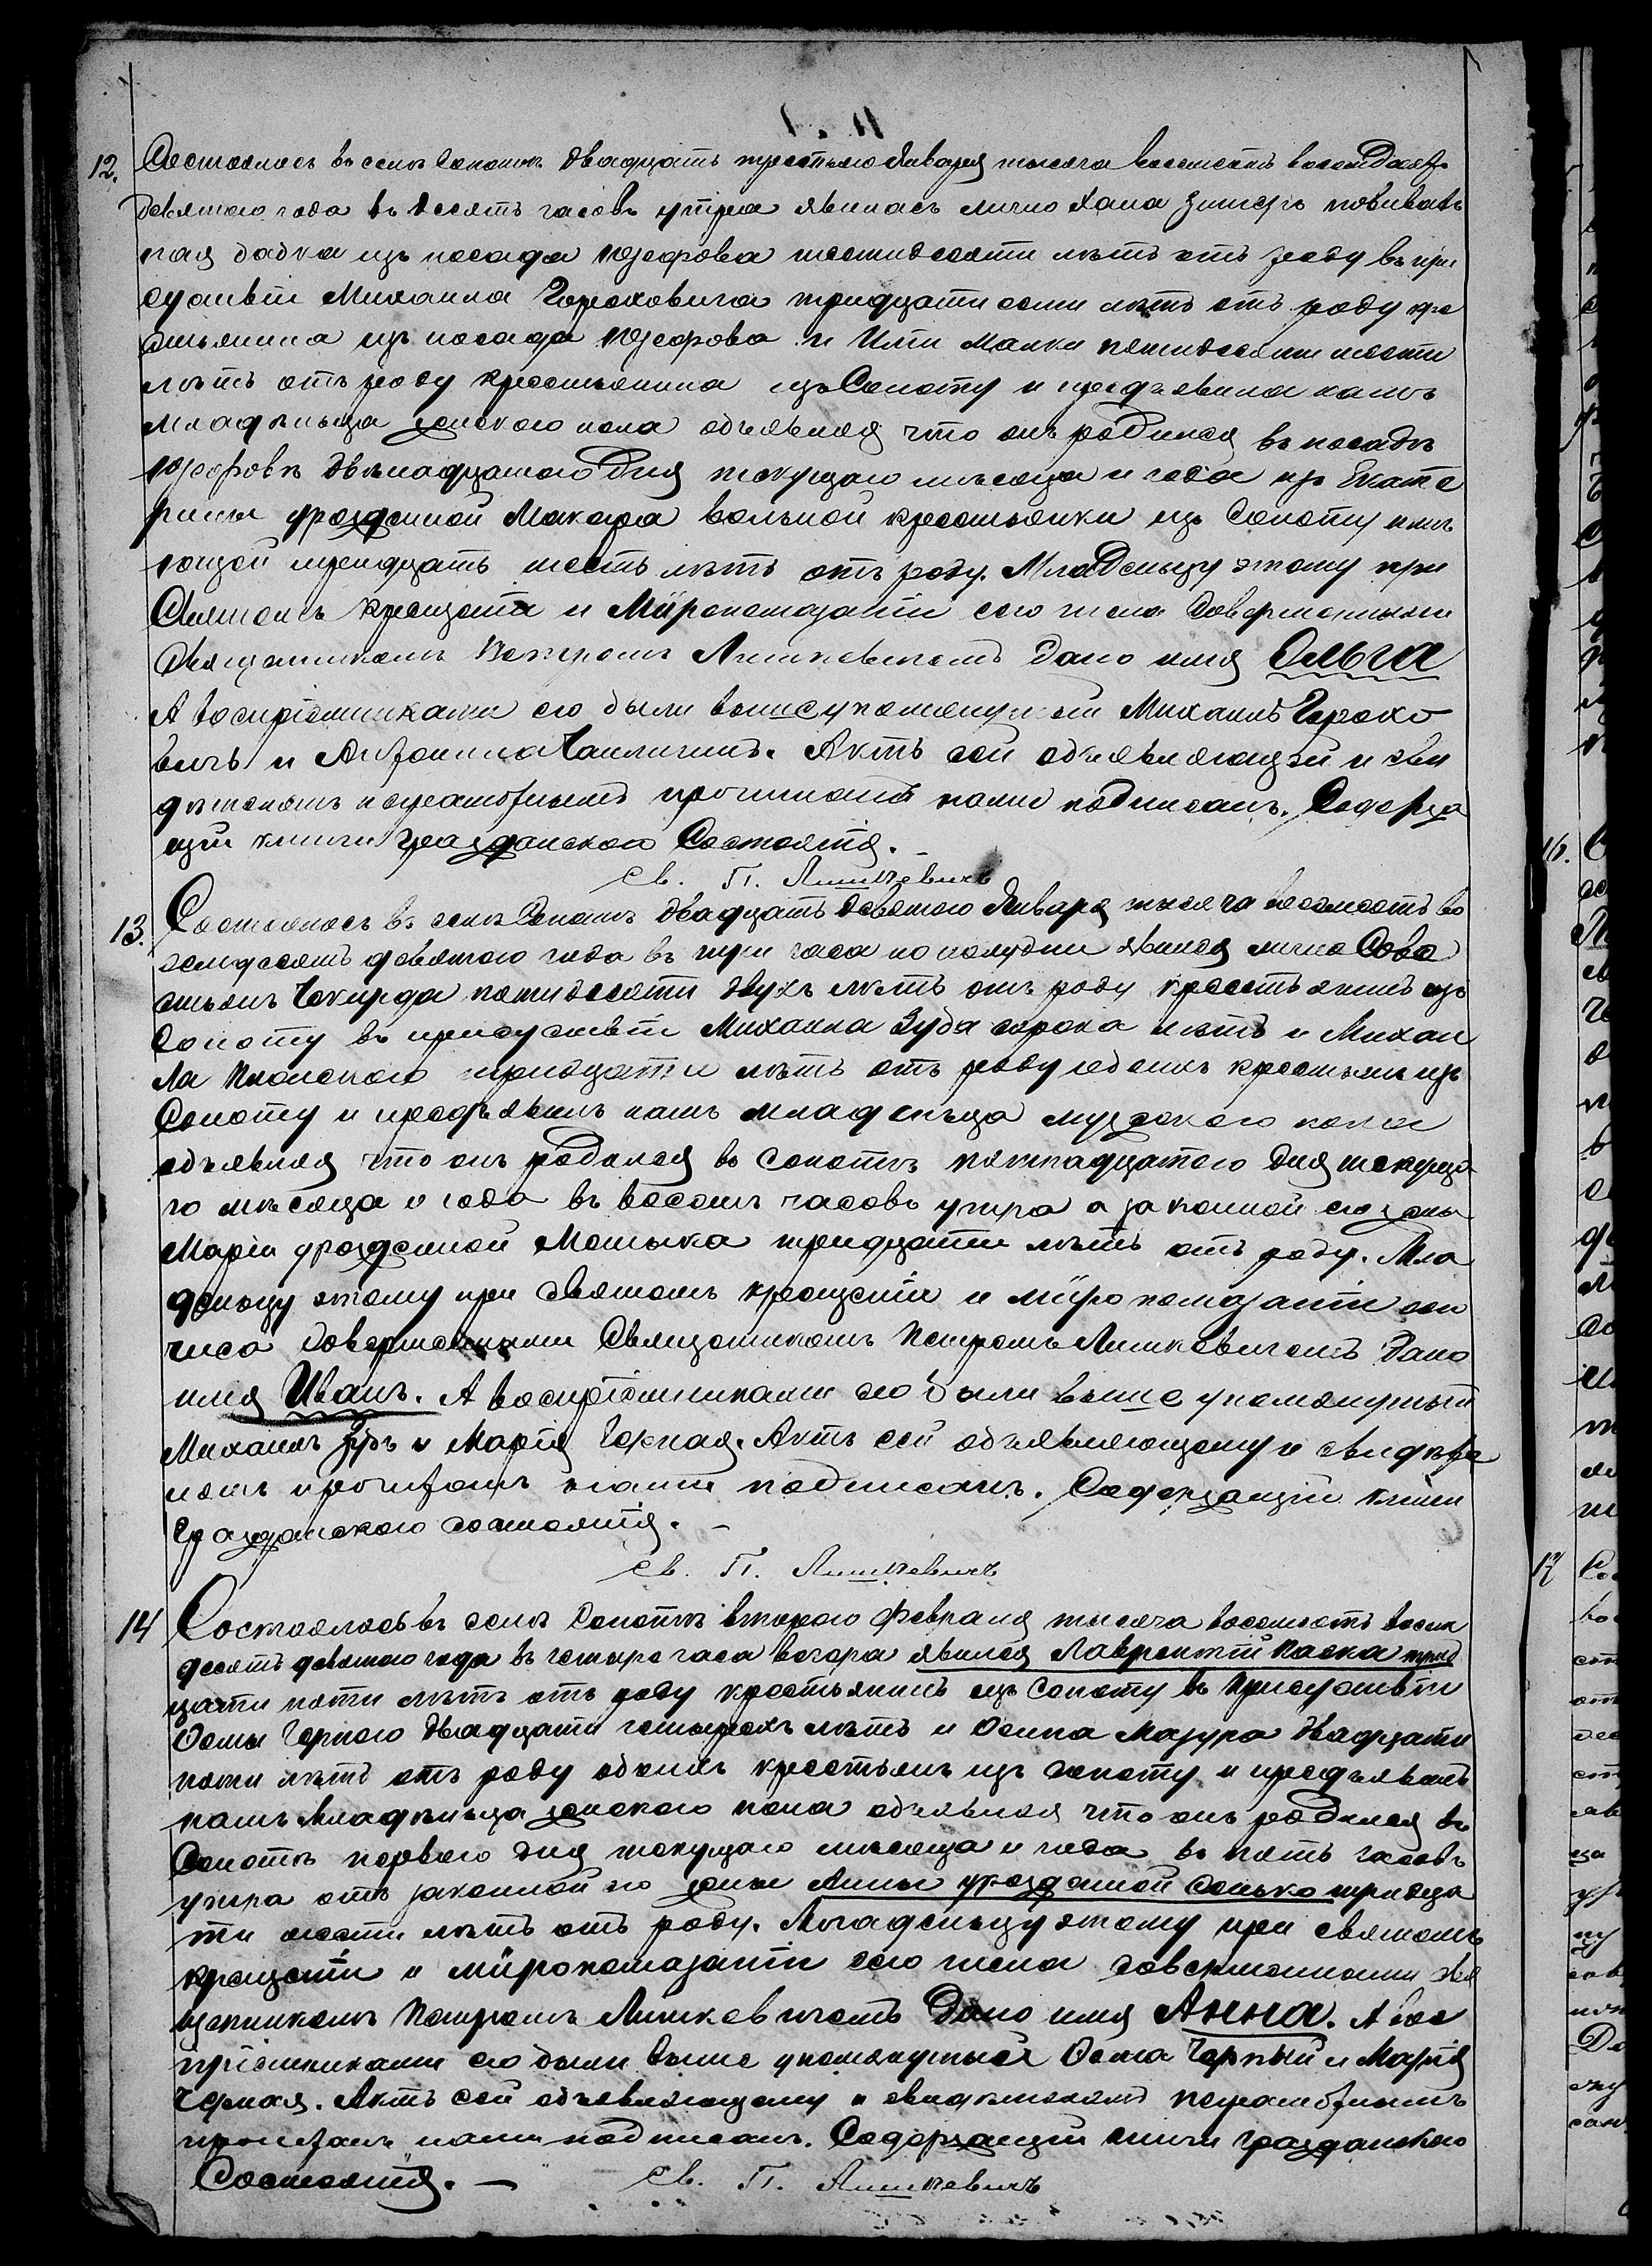 12. Состоялось въ селѣ Сопотѣ двадцать третьяго Января тысяча восемсотъ восемдесятъ
девятого года въ десять часовъ утра явилась лично Хана Зингеръ повиваль
ная бабка изъ посада Юзефова шестидесяти лѣтъ отъ роду въ при
сутствіи Михаила Гороховича тридцати семи лѣтъ отъ роду кре
стьянина изъ посада Юзефова и Илги Малки пятидесяти шести
лѣтъ отъ роду крестьянина изъ Сопоту и предъявила намъ
младенца женского пола объявляя что онъ родился въ посадѣ
Юзефовѣ двѣнадцатого дня текущаго мѣсяца и года изъ Екате
рины урожденной Макара вольной крестьянки изъ Сопоту имѣ
ющей тридцать шесть лѣтъ отъ роду. Младенцу этому при
Святомъ крещеніи и Мѵропомазаніи сего числа совершенными
Священникомъ Петромъ Лишкевичемъ дано имя Ольга
А воспріемниками его были вышеупомянутый Михаилъ Горохо
вичъ и Антонина Актъ сей объявляющей и сви
дѣтелямъ неграмотнымъ прочитанъ нами подписанъ. Содержа
щій книги гражданского Состоянія.
Св. П. Лишкевичъ
13. Состоялось въ селѣ Сопотѣ двадцать девятого Января тысяча восемсотъ во
семдесятъ девятого года въ три часа по полудни явился лично Сева
стьянъ Чакирда пятидесяти двухъ лѣтъ отъ роду крестьянинъ изъ
Сопоту въ присутствіи Михаила Зуба сорока лѣтъ и Михаи
ла тридцати лѣтъ отъ роду обоихъ крестьянъ изъ
Сопоту и предъявилъ намъ младенца мужского пола
объявляя что онъ родился въ Сопотѣ пятнадцатого дня текуща
го мѣсяца и года въ восемъ часовъ утра а законной его жены
Маріи урожденной Мотыка тридцати лѣтъ отъ роду. Мла
денцу этому при святомъ крещеніи и мѵропомазаніи сего
числа совершенными Священникомъ Петромъ Лишкевичемъ дано
имя Иванъ. А воспріемниками его были выше упомянутый
Михаилъ Зубъ и Марія Чорная. Актъ сей объявляющему и свидѣте
лямъ прочитанъ нами подписанъ. Содержащій книги
Гражданского состоянія. –
Св. П. Лишкевичъ
14 Состоялось въ селѣ Сопотѣ второго Февраля тысяча восемсотъ восем
десятъ девятого года въ четыре часа вечера явился Лаврентій Паска трид
цати пяти лѣтъ отъ роду крестьянинъ изъ Сопоту въ присутствіи
Фомы Чорного двадцати четырехъ лѣтъ и Осипа Мазура двадцати
пяти лѣтъ отъ роду обоихъ крестьянъ изъ Сопоту и предъявилъ
намъ Младенца женского пола объявляя что онъ родился въ
Сопотѣ первого дня текущаго мѣсяца и года въ пять часовъ
утра отъ законной его жены Анны урожденной Сенько тридца
ти шести лѣтъ отъ роду. Младенцу этому при святомъ
крещеніи и мѵропомазаніи сего числа совершенными свя
щенникомъ Петромъ Лишкевичемъ дано имя Анна. А вос
пріемниками его были выше упомянутый Фома Чорный и Марія
Чорная. Актъ сей объявляющему и свидѣтелямъ неграмотнымъ
прочитанъ нами подписанъ. Содержащій книги гражданского
Состоянія. –
Св. П. Лишкевичъ
16.
17